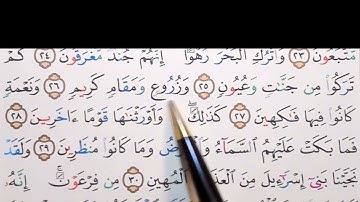 مُّتَّبَعُونَ ٢٣ وَٱتْرُكِ ٱلْبَحْرَ رَهْوًا ۖ إِنَّهُمْ جُندٌ مُّغْرَقُونَ ٢٤ كَمْ
تَرَكُوا۟ مِن جَنَّـٰتٍ وَعُيُونٍ ٢٥ وَزُرُوعٍ وَمَقَامٍ كَرِيمٍ ٢٦ وَنَعْمَةٍ
كَانُوا۟ فِيهَا فَـٰكِهِينَ ٢٧ كَذَٰلِكَ ۖ وَأَوْرَثْنَـٰهَا قَوْمًا ءَاخَرِينَ ٢٨
فَمَا بَكَتْ عَلَيْهِمُ ٱلسَّمَآءُ وَٱلْأَرْضُ وَمَا كَانُوا۟ مُنظَرِينَ ٢٩ وَلَقَدْ
نَجَّيْنَا بَنِىٓ إِسْرَٰٓءِيلَ مِنَ ٱلْعَذَابِ ٱلْمُهِينِ ٣٠ مِن فِرْعَوْنَ ۚ إِنَّهُۥ